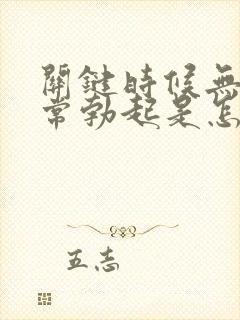 關鍵時候無
常勃起是怎
五志